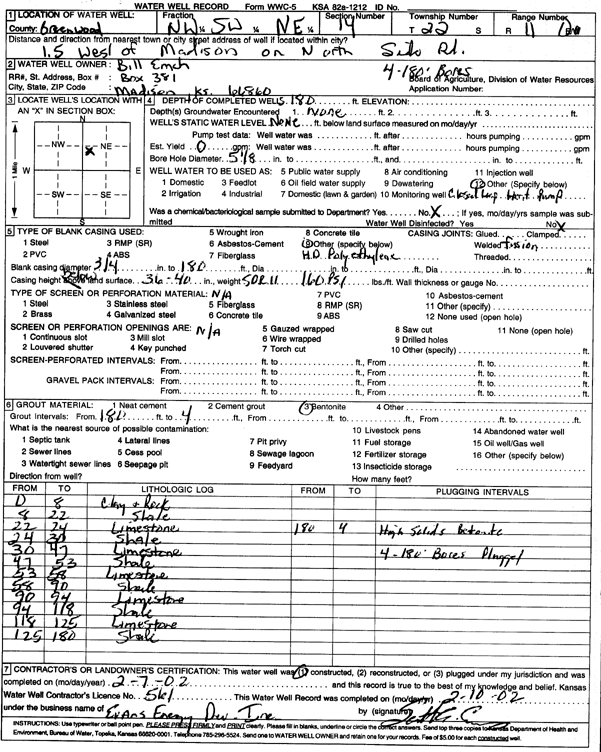 WATER WELL RECORD Form WWC-5 KSA 82a-1212 ID No.
1 LOCATION OF WATER WELL: Fraction Section Number Township Number Range Number
County: Greenwood NW ¼ SW ¼ NE ¼ 14 T 22 S R 11 E/W
Distance and direction from nearest town or city street address of well if located within city?
1.5 West of Madison on North Rd.
2 WATER WELL OWNER: Bill Emch 4-180' Bores
RR#, St. Address, Box # : Box 381 Board of Agriculture, Division of Water Resources
City, State, ZIP Code : Madison Ks. 66860 Application Number:
3 LOCATE WELL'S LOCATION WITH AN "X" IN SECTION BOX:
N
NW NE
X
W E
SW SE
S
1 Mile
4 DEPTH OF COMPLETED WELL 180 ft. ELEVATION:
Depth(s) Groundwater Encountered 1. None ft. 2. ft. 3. ft.
WELL'S STATIC WATER LEVEL None ft. below land surface measured on mo/day/yr
Pump test data: Well water was ft. after hours pumping gpm
Est. Yield 0 gpm: Well water was ft. after hours pumping gpm
Bore Hole Diameter 5 1/8 in. to ft., and in. to ft.
WELL WATER TO BE USED AS: 5 Public water supply 8 Air conditioning 11 Injection well
1 Domestic 3 Feedlot 6 Oil field water supply 9 Dewatering 12 Other (Specify below)
2 Irrigation 4 Industrial 7 Domestic (lawn & garden) 10 Monitoring well Closed Loop Heat Pump
Was a chemical/bacteriological sample submitted to Department? Yes No X ; If yes, mo/day/yrs sample was submitted Water Well Disinfected? Yes No X
5 TYPE OF BLANK CASING USED: 5 Wrought iron 8 Concrete tile CASING JOINTS: Glued Clamped
1 Steel 3 RMP (SR) 6 Asbestos-Cement 9 Other (specify below) Welded Fussion
2 PVC 4 ABS 7 Fiberglass H.D. Polyethylene Threaded
Blank casing diameter 3/4 in. to 180 ft., Dia in. to ft., Dia in. to ft.
Casing height above land surface Below 36-40 in., weight SDR 11 160 PSI lbs./ft. Wall thickness or gauge No.
TYPE OF SCREEN OR PERFORATION MATERIAL: N/A 7 PVC 10 Asbestos-cement
1 Steel 3 Stainless steel 5 Fiberglass 8 RMP (SR) 11 Other (specify)
2 Brass 4 Galvanized steel 6 Concrete tile 9 ABS 12 None used (open hole)
SCREEN OR PERFORATION OPENINGS ARE: N/A 5 Gauzed wrapped 8 Saw cut 11 None (open hole)
1 Continuous slot 3 Mill slot 6 Wire wrapped 9 Drilled holes
2 Louvered shutter 4 Key punched 7 Torch cut 10 Other (specify) ft.
SCREEN-PERFORATED INTERVALS: From ft. to ft., From ft. to ft.
From ft. to ft., From ft. to ft.
GRAVEL PACK INTERVALS: From ft. to ft., From ft. to ft.
From ft. to ft., From ft. to ft.
6 GROUT MATERIAL: 1 Neat cement 2 Cement grout 3 Bentonite 4 Other
Grout Intervals: From 180 ft. to 4 ft., From ft. to ft., From ft. to ft.
What is the nearest source of possible contamination: 10 Livestock pens 14 Abandoned water well
1 Septic tank 4 Lateral lines 7 Pit privy 11 Fuel storage 15 Oil well/Gas well
2 Sewer lines 5 Cess pool 8 Sewage lagoon 12 Fertilizer storage 16 Other (specify below)
3 Watertight sewer lines 6 Seepage pit 9 Feedyard 13 Insecticide storage
Direction from well? How many feet?
FROM TO LITHOLOGIC LOG FROM TO PLUGGING INTERVALS
0 8 Clay & Rock
8 22 Shale
22 24 Limestone 180 4 High Solids Betonite
24 30 Shale
30 47 Limestone 4-180' Bores Plugged
47 53 Shale
53 58 Limestone
58 90 Shale
90 94 Limestone
94 118 Shale
118 125 Limestone
125 180 Shale
7 CONTRACTOR'S OR LANDOWNER'S CERTIFICATION: This water well was (1) constructed, (2) reconstructed, or (3) plugged under my jurisdiction and was
completed on (mo/day/year) 2-7-02 and this record is true to the best of my knowledge and belief. Kansas
Water Well Contractor's Licence No. 561 This Water Well Record was completed on (mo/day/yr) 2-10-02
under the business name of Evans Energy Dev Inc by (signature)
INSTRUCTIONS: Use typewriter or ball point pen. PLEASE PRESS FIRMLY and PRINT clearly. Please fill in blanks, underline or circle the correct answers. Send top three copies to Kansas Department of Health and
Environment, Bureau of Water, Topeka, Kansas 66620-0001. Telephone 785-296-5524. Send one to WATER WELL OWNER and retain one for your records. Fee of $5.00 for each constructed well.